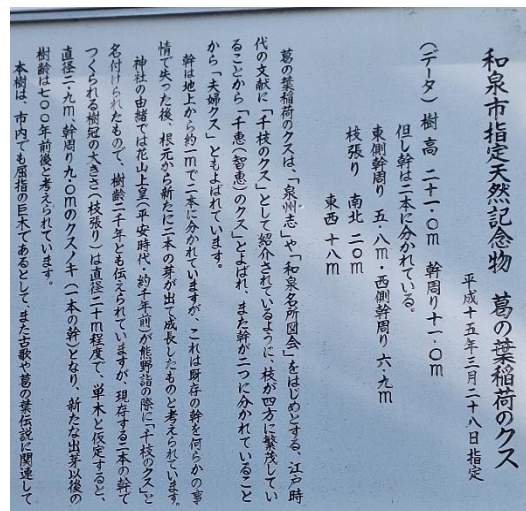 和泉市指定天然記念物 葛の葉稲荷のクス
平成十五年三月二十八日指定
(データ) 樹高 二十一・〇m 幹周り十一・〇m
但し幹は二本に分かれている。
東側幹周り 五・八m・西側幹周り 六・九m
枝張り 南北 二〇m
東西 十八m
葛の葉稲荷のクスは、「泉州志」や「和泉名所図会」をはじめとする、江戸時
代の文献に「千枝のクス」として紹介されているように、枝が四方に繁茂してい
ることから「千恵(智恵)のクス」とよばれ、また幹が二つに分かれていること
から「夫婦クス」ともよばれています。
幹は地上から約一mで二本に分かれていますが、これは既存の幹を何らかの事
情で失った後、根元から新たに二本の芽が出て成長したものと考えられています。
神社の由緒では花山上皇(平安時代・約千年前)が熊野詣の際に「千枝のクス」と
名付けられたもので、樹齢二千年とも伝えられていますが、現存する二本の幹で
つくられる樹冠の大きさ(枝張り)は直径二十m程度で、単木と仮定すると、
直径二・九m、幹周り九・〇mのクスノキ(一本の幹)となり、新たな出芽以後の
樹齢は七〇〇年前後と考えられています。
本樹は、市内でも屈指の巨木であるとして、また古歌や葛の葉伝説に関連して